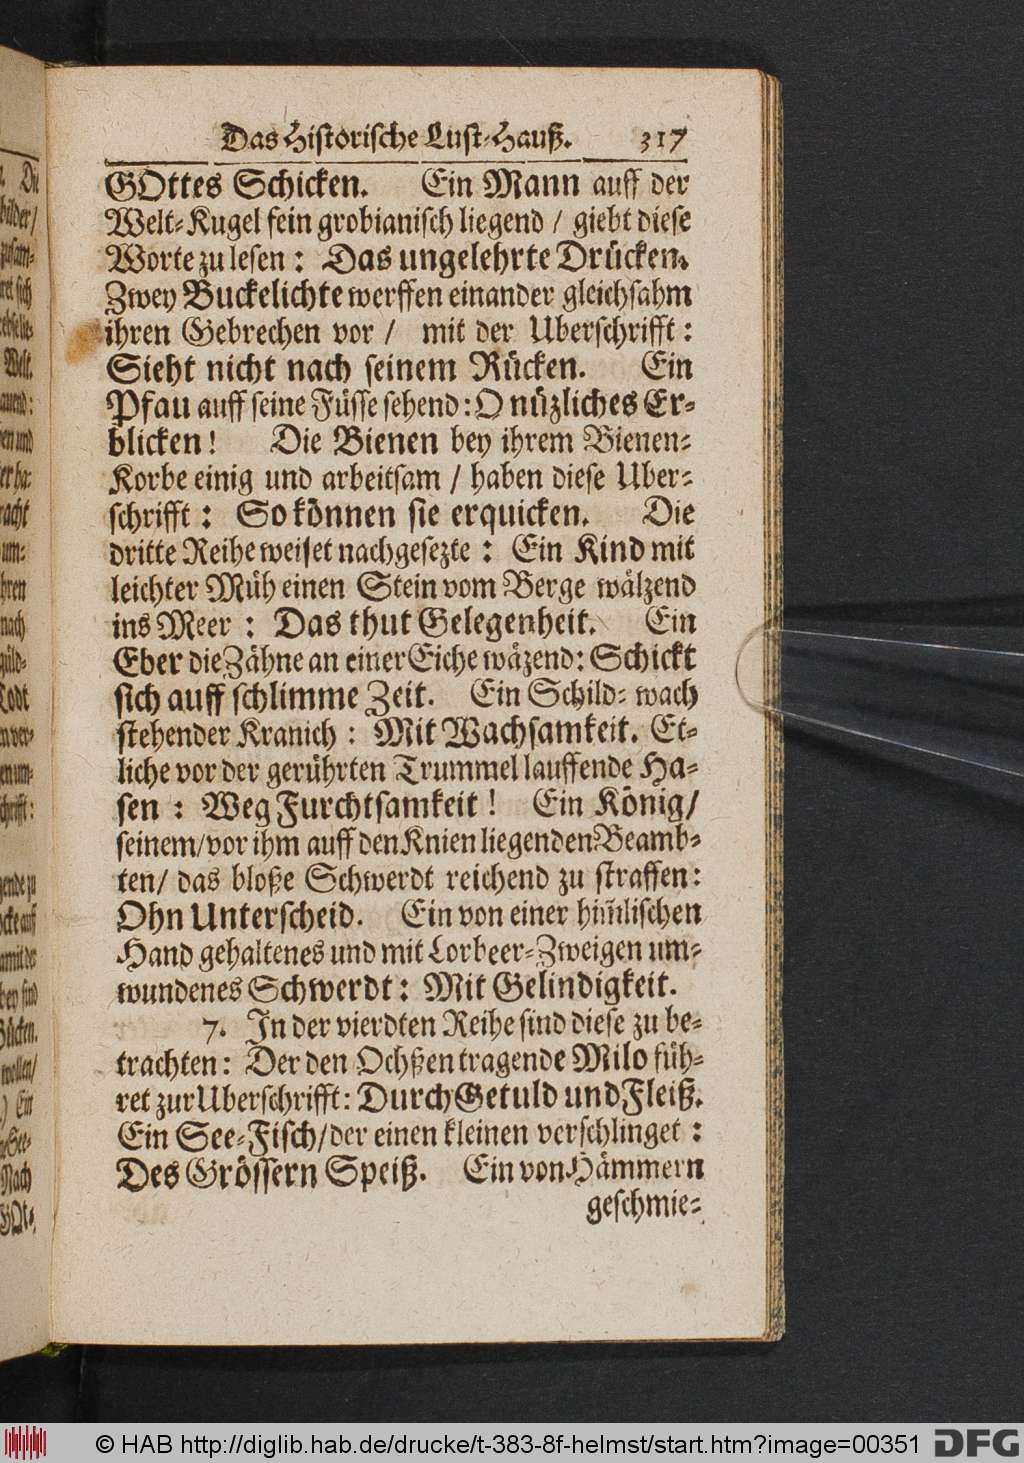 Das Historische Lust-Hauß. 317
GOttes Schicken. Ein Mann auff der
Welt-Kugel fein grobianisch liegend / giebt diese
Worte zu lesen: Das ungelehrte Drücken.
Zwey Buckelichte werffen einander gleichsahm
ihren Gebrechen vor / mit der Uberschrifft:
Sieht nicht nach seinem Rücken. Ein
Pfau auff seine Füsse sehend: O nüzliches Er-
blicken! Die Bienen bey ihrem Bienen-
Korbe einig und arbeitsam / haben diese Uber-
schrifft: So können sie erquicken. Die
dritte Reihe weiset nachgesezte: Ein Kind mit
leichter Müh einen Stein vom Berge wälzend
ins Meer: Das thut Gelegenheit. Ein
Eber die Zähne an einer Eiche wäzend: Schickt
sich auff schlimme Zeit. Ein Schild-wach
stehender Kranich: Mit Wachsamkeit. Et-
liche vor der gerührten Trummel lauffende Ha-
sen: Weg Furchtsamkeit! Ein König/
seinem/vor ihm auff den Knien liegenden Beamb-
ten/ das bloße Schwerdt reichend zu straffen:
Ohn Unterscheid. Ein von einer him̃lischen
Hand gehaltenes und mit Lorbeer-Zweigen um-
wundenes Schwerdt: Mit Gelindigkeit.
7. In der vierdten Reihe sind diese zu be-
trachten: Der den Ochßen tragende Milo füh-
ret zur Uberschrifft: Durch Getuld und Fleiß.
Ein See-Fisch/der einen kleinen verschlinget:
Des Grössern Speiß. Ein von Hämmern
geschmie-
© HAB http://diglib.hab.de/drucke/t-383-8f-helmst/start.htm?image=00351
DFG